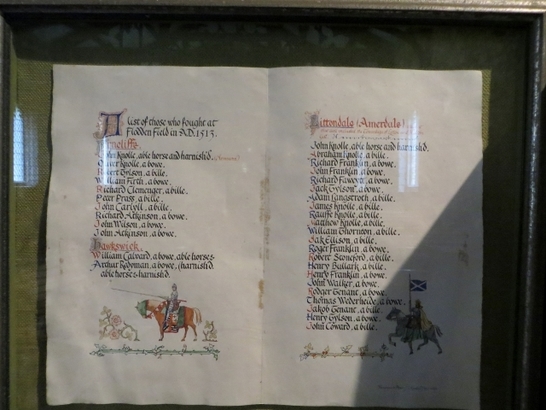 A list of those who fought at
Flodden Field in A.D. 1513.
Arncliffe.
John Knolle, able horse and harnish'd.
Oliver Knolle, a bowe.
Robert Tylson, a bille.
William Firth, a bowe.
Richard Clemenger, a bille.
Peter Prass, a bille.
John Carlyll, a bille.
Richard Atkinson, a bowe.
John Wilson, a bowe.
John Atkinson, a bowe.
Hawkswick.
William Calvard, a bowe, able horse &
Arthur Redyman, a bowe, (harnish'd
able horse & harnish'd.
Littondale (Amerdale)
John Knolle, able horse and harnish'd,
Abraham Knolle, a bille.
Richard Franklin, a bowe.
John Franklin, a bowe.
Richard Fawcett, a bowe.
Jack Tylson, a bowe.
Adam Langstroth, a bille.
James Knolle, a bille.
Rauffe Knolle, a bille.
Matthew Knolle, a bille.
William Thornton, a bille.
Jak Ellison, a bille.
Roger Franklin, a bowe.
Robert Stoneford, a bille.
Henry Bullark, a bille.
Henry Franklin, a bowe.
John Walker, a bowe.
Rodger Tenant, a bowe.
Thomas Wederhede, a bowe.
Jakob Tenant, a bille.
Henry Tylson, a bowe.
John Coward, a bille.